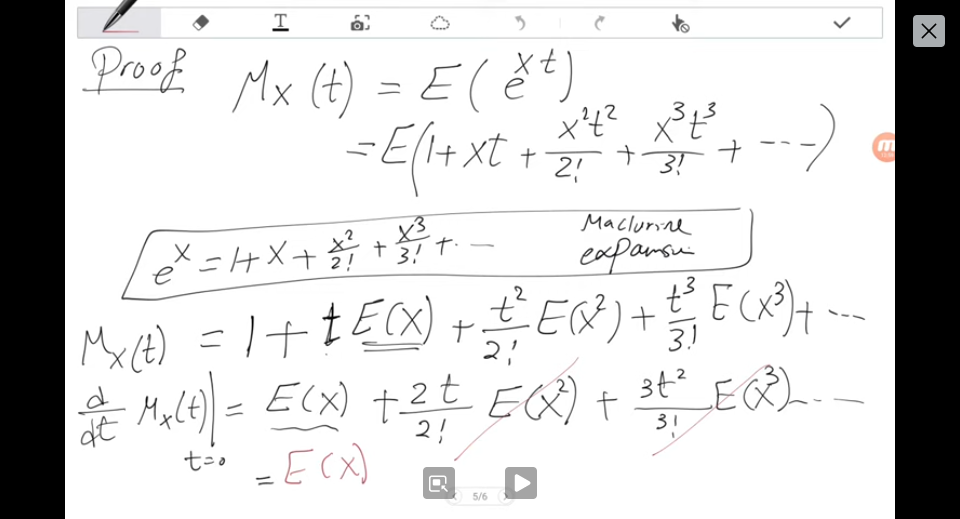 Proof Mx(t) = E(e^xt)
= E(1 + xt + x²t²/2! + x³t³/3! + ---)
e^x = 1 + x + x²/2! + x³/3! + ... Maclurine
expansion
Mx(t) = 1 + t E(x) + t²/2! E(x²) + t³/3! E(x³) + ---
d/dt Mx(t)|t=0 = E(x) + 2t/2! E(x²) + 3t²/3! E(x³) ----
= E(x)
5/6